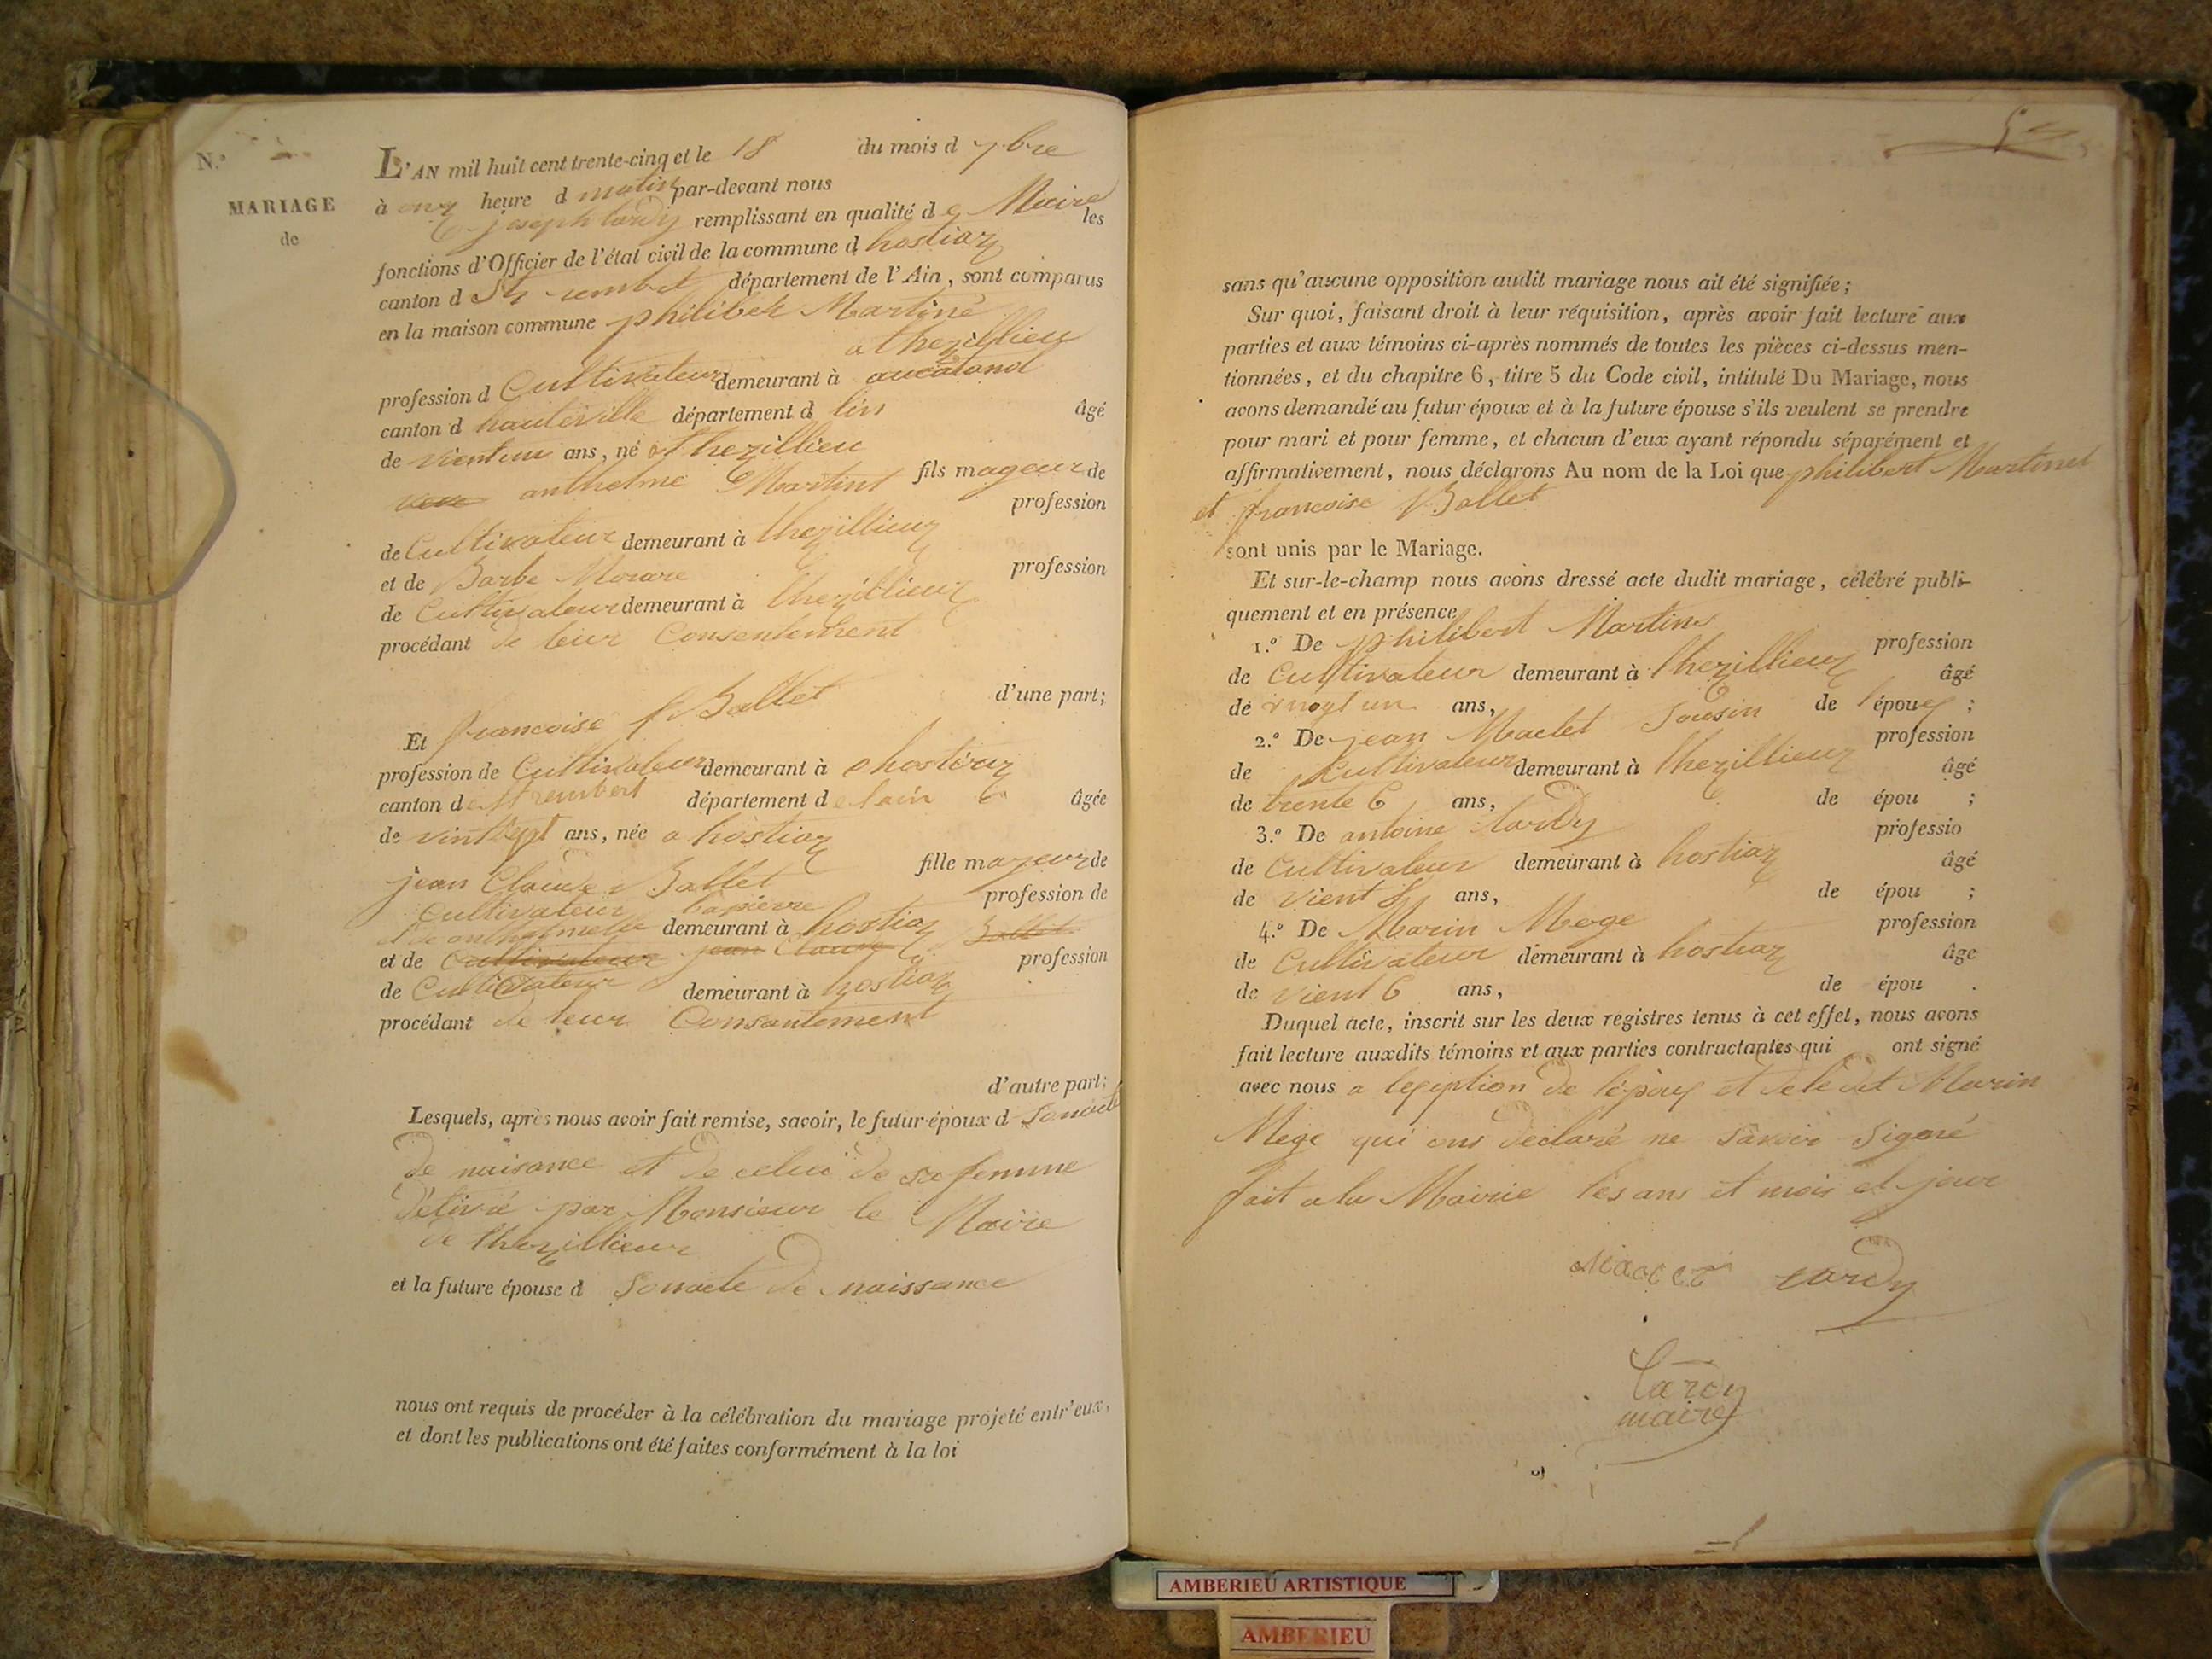 N.°
MARIAGE
de
L'AN mil huit cent trente-cinq et le 18 du mois d 7bre
à onz heure d matin par-devant nous
joseph tardy remplissant en qualité de Maire les
fonctions d'Officier de l'état civil de la commune d hostiaz
canton d St rembert département de l'Ain, sont comparus
en la maison commune philibert Martine
a thezillieu
profession d Cultivateur demeurant à
canton d hauteville département d lin âgé
de vientun ans, né a thezillieu
anthelme Martint fils mageur de
profession
de Cultivateur demeurant à thezillieuz
et de Barbe Morare profession
de Cultivateur demeurant à thezillieuz
procédant de leur Consentement
d'une part;
Et francoise Ballet
profession de Cultivateur demeurant à hostiaz
canton de St rembert département de lain âgée
de vintsept ans, née a hostiaz
fille mageur de
jean Claude Ballet
profession de
Cultivateur lapierre
et de anthelmette demeurant à hostiaz Ballet
et de Cultivateur jean Claude profession
de Cultivateur demeurant à hostiaz
procédant de leur Consantement
d'autre part;
Lesquels, après nous avoir fait remise, savoir, le futur époux d Sonacte
de naisance et de celui de sa femme
délivré par Monsieur le Maire
de thezillieuz
et la future épouse d Sonacte de naissance
nous ont requis de procéder à la célébration du mariage projeté entr'eux,
et dont les publications ont été faites conformément à la loi
sans qu'aucune opposition audit mariage nous ait été signifiée;
Sur quoi, faisant droit à leur réquisition, après avoir fait lecture aux
parties et aux témoins ci-après nommés de toutes les pièces ci-dessus men-
tionnées, et du chapitre 6, titre 5 du Code civil, intitulé Du Mariage, nous
avons demandé au futur époux et à la future épouse s'ils veulent se prendre
pour mari et pour femme, et chacun d'eux ayant répondu séparément et
affirmativement, nous déclarons Au nom de la Loi que philibert Martinet
et francoise Ballet
sont unis par le Mariage.
Et sur-le-champ nous avons dressé acte dudit mariage, célébré publi-
quement et en présence
1.° De philibert Martine profession
de Cultivateur demeurant à thezillieuz âgé
de vingt un ans, Sousin de l'épouy ;
2.° De jean Maclet profession
de Cultivateur demeurant à thezillieuz âgé
de trente 6 ans, de épou ;
3.° De antoine tardy professio
de Cultivateur demeurant à hostiaz âgé
de vient 8 ans, de épou ;
4.° De Marin Mege profession
de Cultivateur demeurant à hostiaz âge
de vient 6 ans, de épou .
Duquel acte, inscrit sur les deux registres tenus à cet effet, nous avons
fait lecture auxdits témoins et aux parties contractantes qui ont signé
avec nous a lexeption de lepouy et dele dit Marin
Mege qui ons declaré ne Savoir Signé
fait a la Mairie les ans et mois et jour
tardy
tardy
maire
AMBERIEU ARTISTIQUE
AMBERIEU